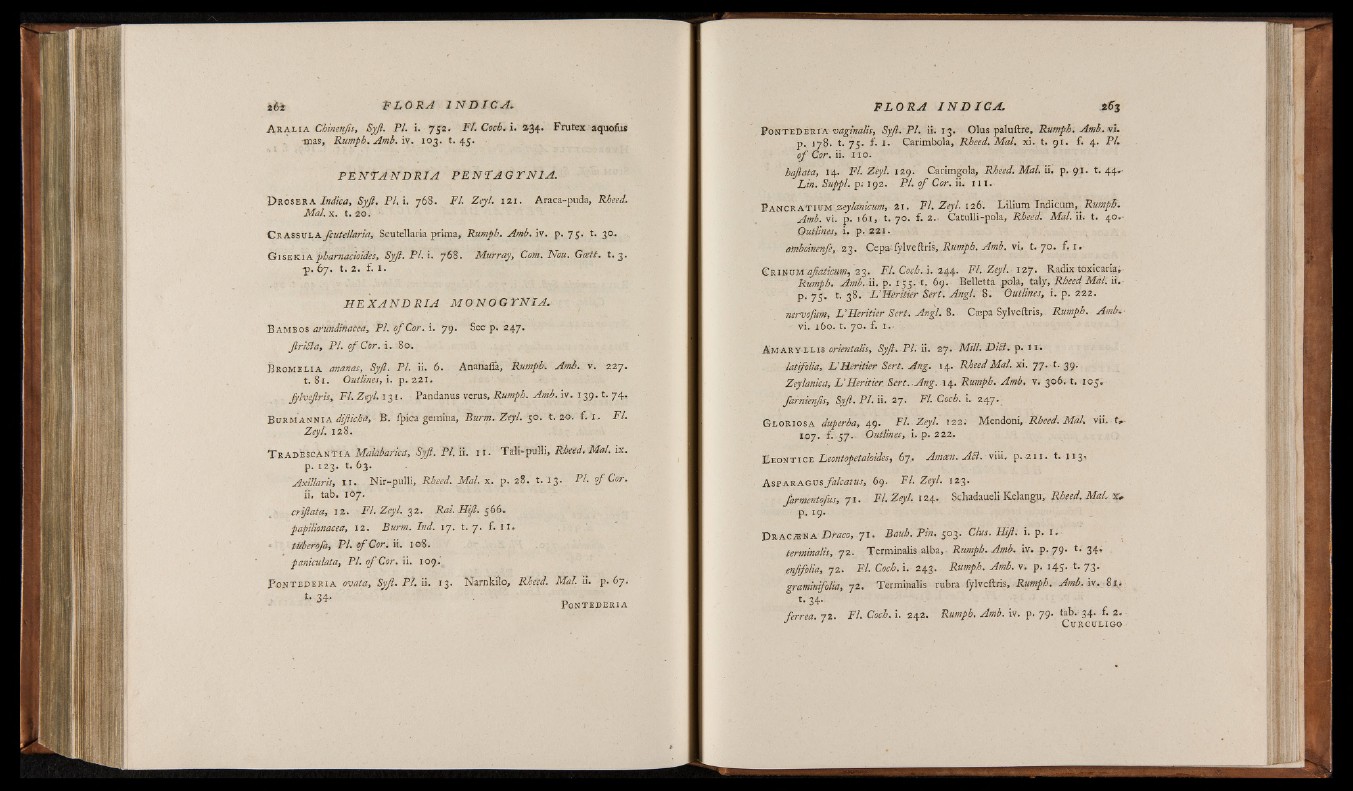 262 FLORA INDICA.
ARALIA Chinenſis, Syſt. Pl. i. 752. Fl. Coch. i. 234. Frutex aquoſus
mas, Rumph. Amb. iv. 103. t. 45.
PENTANDRIA PENTAGYNIA.
DROSERA Indica, Syſt. Pl. i. 768. Fl. Zeyl. 121. Araca-puda, Rheed.
Mal. x. t. 20.
CRASSULA ſcutellaria, Scutellaria prima, Rumph. Amb. iv. p. 75. t. 30.
GISEKIA pharnacioides, Syſt. Pl. i. 768. Murray, Com. Nou. Gœtt. t. 3.
p. 67. t. 2. f. 1.
HEXANDRIA MONOGYNIA.
BAMBOS arundinacea, Pl. of Cor. i. 79. See p. 247.
ſtricta, Pl. of Cor. i. 80.
BROMELIA ananas, Syſt. Pl. ii. 6. Ananaſſa, Rumph. Amb. v. 227.
t. 81. Outlines, i. p. 221.
ſylveſtris, Fl. Zeyl. 131. Pandanus verus, Rumph. Amb. iv. 139. t. 74.
BURMANNIA diſticha, B. ſpica gemina, Burm. Zeyl. 50. t. 20. f. 1. Fl.
Zeyl. 128.
TRADESCANTIA Malabarica, Syſt. Pl. ii. 11. Tali-pulli, Rheed. Mal. ix.
p. 123. t. 63.
Axillaris, 11. Nir-pulli, Rheed. Mal. x. p. 28. t. 13. Pl. of Cor.
ii. tab. 107.
criſtata, 12. Fl. Zeyl. 32. Rai. Hiſt. 566.
papilionacea, 12. Burm. Ind. 17. t. 7. f. 11.
tuberoſa, Pl. of Cor. ii. 108.
paniculata, Pl. of Cor. ii. 109.
PONTEDERIA ovata, Syſt. Pl. ii. 13. Narnkilo, Rheed. Mal. ii. p. 67.
t. 34.
PONTEDERIA
FLORA INDICA. 263
PONTEDERIA vaginalis, Syſt. Pl. ii. 13. Olus paluſtre, Rumph. Amb. vi.
p. 178. t. 75. f. 1. Carimbola, Rheed. Mal. xi. t. 91. f. 4. Pl.
of Cor. ii. 110.
haſtata, 14. Fl. Zeyl. 129. Carimgola, Rheed. Mal. ii. p. 91. t. 44.
Lin. Suppl. p. 192. Pl. of Cor. ii. 111.
PANCRATIUM zeylanicum, 21. Fl. Zeyl. 126. Lilium Indicum, Rumph.
Amb. vi. p. 161, t. 70. f. 2. Catulli-pola, Rheed. Mal. ii. t. 40.
Outlines, i. p. 221.
amboinenſe, 23. Cepa ſylveſtris, Rumph. Amb. vi. t. 70. f. 1.
CRINUM aſiaticum, 23. Fl. Coch. i. 244. Fl. Zeyl. 127. Radix toxicaria,
Rumph. Amb. ii. p. 155. t. 69. Belletta pola, taly, Rheed Mal. ii.
p. 75. t. 38. L'Heritier Sert. Angl. 8. Outlines, i. p. 222.
nervoſum, L'Heritier Sert. Angl. 8. Cæpa Sylveſtris, Rumph. Amb.
vi. 160. t. 70. f. 1.
AMARYLLIS orientalis, Syſt. Pl. ii. 27. Mill. Dict. p. 11.
latifolia, L'Heritier Sert. Ang. 14. Rheed Mal. xi. 77. t. 39.
Zeylanica, L'Heritier Sert. Ang. 14. Rumph. Amb. v. 306. t. 105.
ſarnienſis, Syſt. Pl. ii. 27. Fl. Coch. i. 247.
GLORIOSA ſuperba, 49. Fl. Zeyl. 122. Mendoni, Rheed. Mal. vii. t.
107. f. 57. Outlines, i. p. 222.
LEONTICE Leontopetaloides, 67. Amœn. Act. viii. p. 211. t. 113.
ASPARAGUS falcatus, 69. Fl. Zeyl. 123.
ſarmentoſus, 71. Fl. Zeyl. 124. Schadaueli Kelangu, Rheed. Mal. x.
p. 19.
DRACÆNA Draco, 71. Bauh. Pin. 503. Clus. Hiſt. i. p. 1.
terminalis, 72. Terminalis alba, Rumph. Amb. iv. p. 79. t. 34.
enſifolia, 72. Fl. Coch. i. 243. Rumph. Amb. v. p. 145. t. 73.
graminifolia, 72. Terminalis rubra ſylveſtris, Rumph. Amb. iv. 81.
t. 34.
ferrea. 72. Fl. Coch. i. 242. Rumph. Amb. iv. p. 79. tab. 34. f. 2.
CURCULIGO